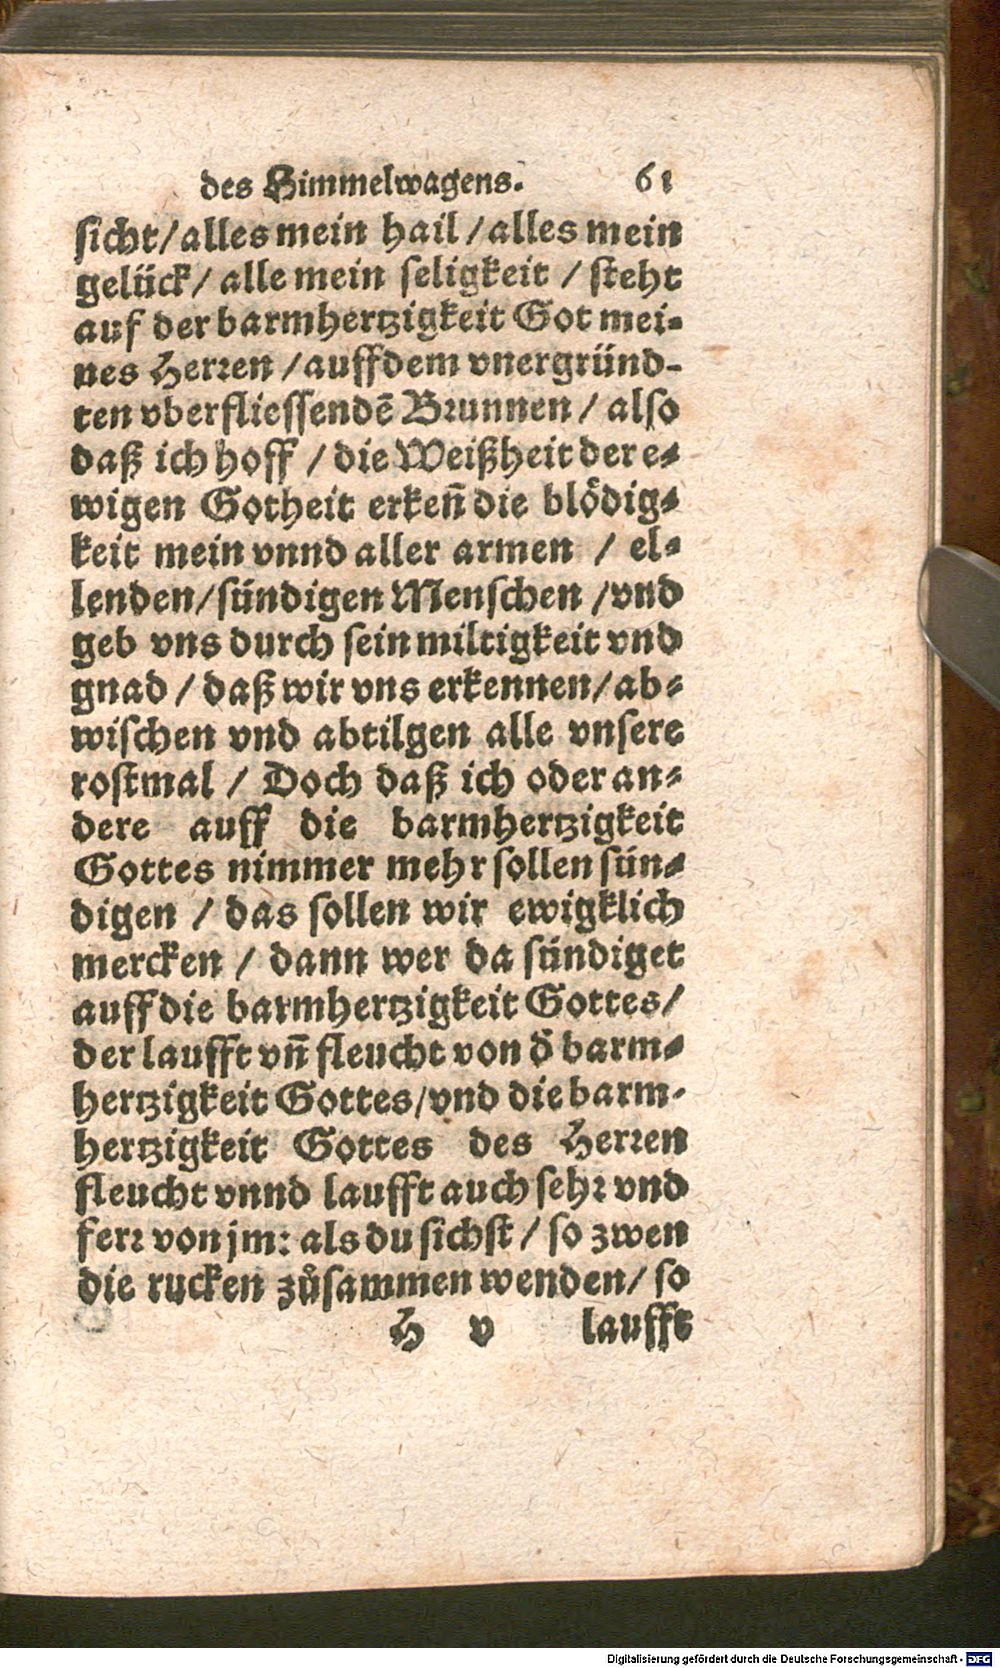 des Himmelwagens. 61
sicht / alles mein hail / alles mein
gelück / alle mein seligkeit / steht
auf der barmhertzigkeit Got mei-
nes Herren / auff dem vnergründ-
ten vberfliessendē Brunnen / also
daß ich hoff / die Weißheit der e-
wigen Gotheit erkeñ die blödig-
keit mein vnnd aller armen / el-
lenden / sündigen Menschen / vnd
geb vns durch sein miltigkeit vnd
gnad / daß wir vns erkennen / ab-
wischen vnd abtilgen alle vnsere
rostmal / Doch daß ich oder an-
dere auff die barmhertzigkeit
Gottes nimmer mehr sollen sün-
digen / das sollen wir ewigklich
mercken / dann wer da sündiget
auff die barmhertzigkeit Gottes /
der laufft vñ fleucht von d̕ barm-
hertzigkeit Gottes / vnd die barm-
hertzigkeit Gottes des Herren
fleucht vnnd laufft auch sehr vnd
ferr von jm: als du sichst / so zwen
die rucken zůsammen wenden / so
H v laufft
Digitalisierung gefördert durch die Deutsche Forschungsgemeinschaft - DFG